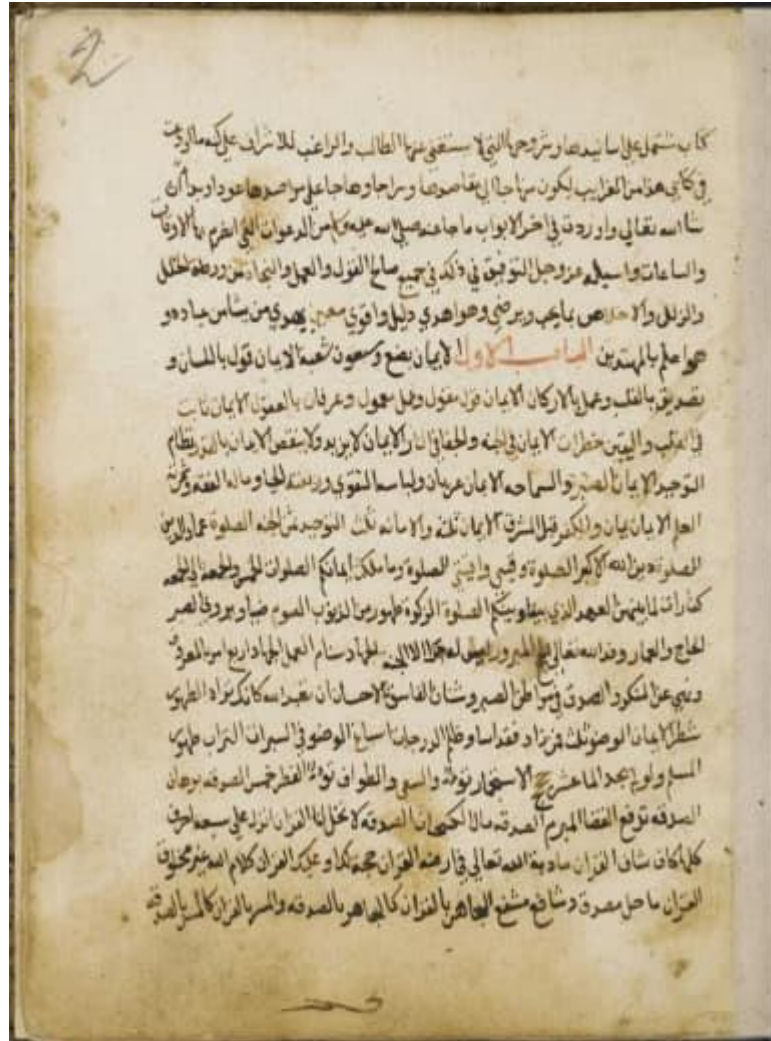 2
كتاب يشتمل على اسانيدها وشروحها التي لا يستغني عنها الطالب والراغب للاشراف على كنه ما اودعت
في كتابي هذا من الغرايب ليكون منهاجا الي مقاصدها وسراجا وهاجا على مراصدها عودا وبدأ ان
شا الله تعالي واوردت في اخر الابواب ما جا عنه صلي الله عليه وسلم من الدعوات التي الاوقات
والساعات واسيله عز وجل التوفيق في ذلك في جميع صالح القول والعمل والنجاة من ورطة الخلل
والزلل والاخلاص بما يحب ويرضي وهو اهدي دليل واقوي معين يهدي من يشا من عباده و
هو اعلم بالمهتدين الباب الاول الايمان بضع وسبعون شعبة الايمان قول باللسان و
تصديق بالقلب وعمل بالاركان الايمان قول مقول وعمل معمول وعرفان بالعقول الايمان ثابت
في القلب واليقين خطرات الايمان في الجنه والجفا في النار الايمان لا يزيد ولا ينقص الايمان بالقدر نظام
التوحيد الايمان الصبر والسماحه الايمان عريان ولباسه التقوي وزينته الحيا وماله الفقه وثمرته
العلم الايمان يمان والكفر قبل المشرق الايمان ثلثه والامانه ثلث التوحيد ثمن الجنه الصلوة عماد الدين
الصلوة الصلوة وما ملكت ايمانكم الصلوات الخمس والجمعة الي الجمعه
كفارات لما بينهن العهد الذي بيننا وبينكم الصلوة الزكوة طهور من الذنوب الصوم ضيا والصبر
الحاج والعمار وفد الله تعالي الحج المبرور ليس له جزا الا الجنه الجهاد سنام العمل الجهاد اربع امر بالمعروف
ونهي عن المنكر والصدق في مواطن الصبر وشنان الفاسق الاحسان ان تعبد الله كانك تراه الطهور
شطر الايمان الوضو ثلث فمن زاد فقد اسا وظلم الدرجات اسباغ الوضو في السبرات التراب طهور
المسلم ولو لم يجد الما عشر حجج الاستجمار تو والسعي والطواف تو الفطر خمس الصدقه برهان
الصدقه ترفع القضا المبرم الصدقه الصدقه لا تحل لنا القران انزل على سبعه احرف
كلها كاف شاف القران مادبة الله تعالي في ارضه القران حجة لك او عليك القران كلام الله غير مخلوق
القران ماحل مصدق وشافع مشفع الجاهر بالقران كالجاهر بالصدقه والمسر بالقران كالمسر بالصدقه